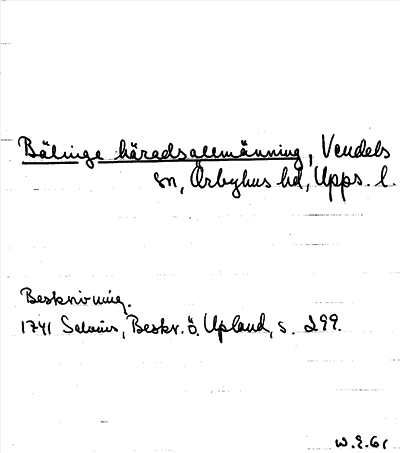 Bälinge häradsallmänning, Vendels
sn, Örbyhus hd, Upps. l.
Beskrivning.
1741 Salvius, Beskr. ö. Upland, s. 299.
W.E. 61